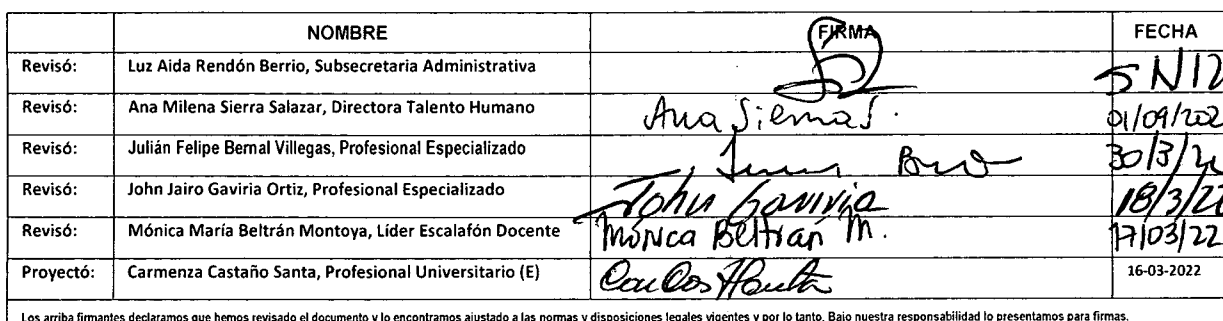 NOMBRE FIRMA FECHA
Revisó: Luz Aida Rendón Berrio, Subsecretaria Administrativa
Revisó: Ana Milena Sierra Salazar, Directora Talento Humano Ana Sierra S. 01/09/202
Revisó: Julián Felipe Bernal Villegas, Profesional Especializado 30/3/
Revisó: John Jairo Gaviria Ortiz, Profesional Especializado John Gaviria 18/3/22
Revisó: Mónica María Beltrán Montoya, Líder Escalafón Docente Mónica Beltrán M. 17/03/22
Proyectó: Carmenza Castaño Santa, Profesional Universitario (E) 16-03-2022
Los arriba firmantes declaramos que hemos revisado el documento y lo encontramos ajustado a las normas y disposiciones legales vigentes y por lo tanto, Bajo nuestra responsabilidad lo presentamos para firmas.